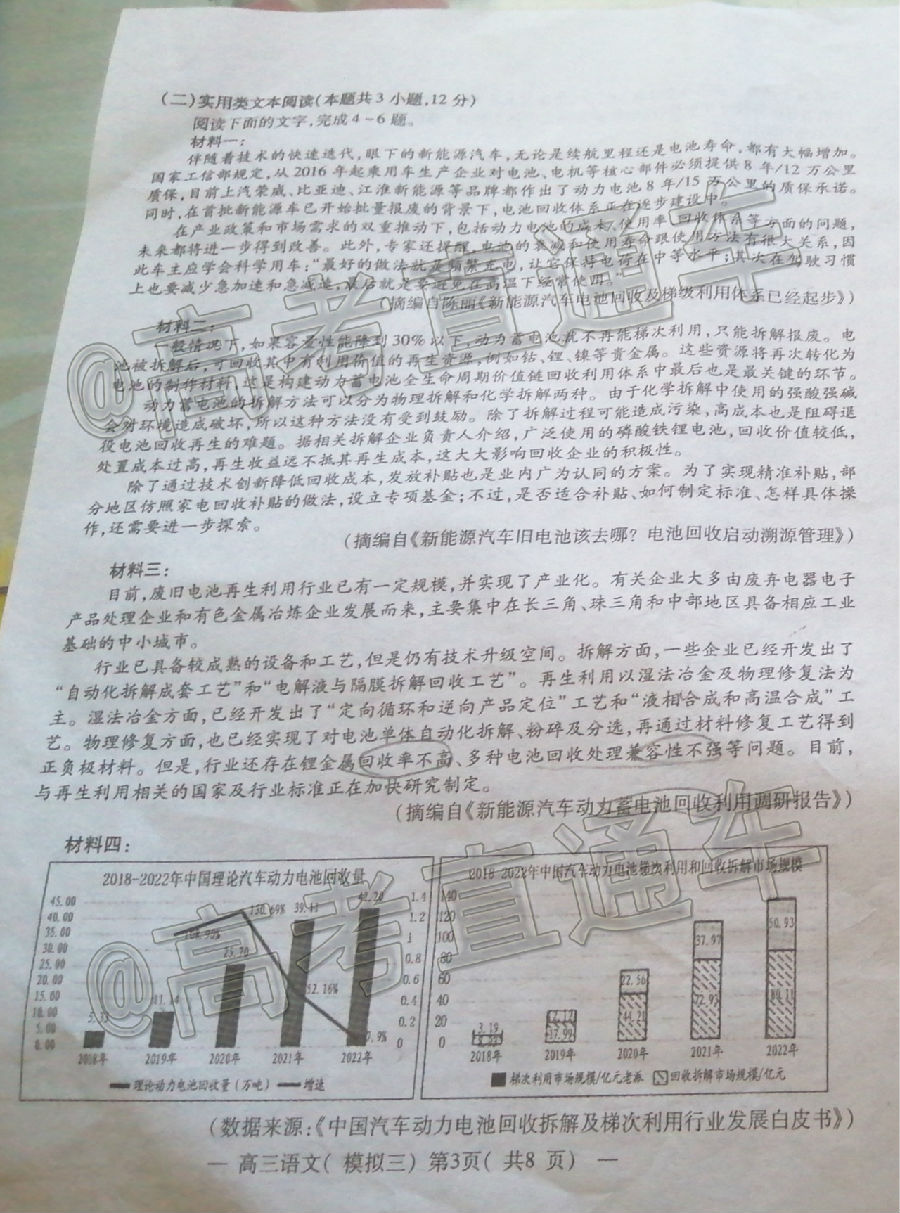 (二)实用类文本阅读(本题共3小题,12分)
阅读下面的文字,完成4~6题。
材料一:
伴随着技术的快速迭代,眼下的新能源汽车,无论是续航里程还是电池寿命,都有大幅增加。
国家工信部规定,从2016年起乘用车生产企业对电池、电机等核心部件必须提供8年/12万公里
质保,目前上汽荣威、比亚迪、江淮新能源等品牌都作出了动力电池8年/15万公里的质保承诺。
同时,在首批新能源车已开始批量报废的背景下,电池回收体系正在逐步建设中。
在产业政策和市场需求的双重推动下,包括动力电池的成本、使用率、回收体系等方面的问题,
未来都将进一步得到改善。此外,专家还提醒,电池的衰减和使用寿命跟使用方法有很大关系,因
此车主应学会科学用车:“最好的做法就是频繁充电,让它保持电荷在中等水平;其次在驾驶习惯
上也要减少急加速和急减速,最后就是要避免在高温下经常使用。”
(摘编自陈丽《新能源汽车电池回收及梯级利用体系已经起步》)
材料二:
一般情况下,如果容量性能降到30%以下,动力蓄电池就不再能梯次利用,只能拆解报废。电
池被拆解后,可回收其中有利用价值的再生资源,例如钴、锂、镍等贵金属。这些资源将再次转化为
电池的制作材料,这是构建动力蓄电池全生命周期价值链回收利用体系中最后也是最关键的环节。
动力蓄电池的拆解方法可以分为物理拆解和化学拆解两种。由于化学拆解中使用的强酸强碱
会对环境造成破坏,所以这种方法没有受到鼓励。除了拆解过程可能造成污染,高成本也是阻碍退
役电池回收再生的难题。据相关拆解企业负责人介绍,广泛使用的磷酸铁锂电池,回收价值较低,
处置成本过高,再生收益远不抵其再生成本,这大大影响回收企业的积极性。
除了通过技术创新降低回收成本,发放补贴也是业内广为认同的方案。为了实现精准补贴,部
分地区仿照家电回收补贴的做法,设立专项基金;不过,是否适合补贴、如何制定标准、怎样具体操
作,还需要进一步探索。
(摘编自《新能源汽车旧电池该去哪?电池回收启动溯源管理》)
材料三:
目前,废旧电池再生利用行业已有一定规模,并实现了产业化。有关企业大多由废弃电器电子
产品处理企业和有色金属冶炼企业发展而来,主要集中在长三角、珠三角和中部地区具备相应工业
基础的中小城市。
行业已具备较成熟的设备和工艺,但是仍有技术升级空间。拆解方面,一些企业已经开发出了
“自动化拆解成套工艺”和“电解液与隔膜拆解回收工艺”。再生利用以湿法冶金及物理修复法为
主。湿法冶金方面,已经开发出了“定向循环和逆向产品定位”工艺和“液相合成和高温合成”工
艺。物理修复方面,也已经实现了对电池单体自动化拆解、粉碎及分选,再通过材料修复工艺得到
正负极材料。但是,行业还存在锂金属回收率不高、多种电池回收处理兼容性不强等问题。目前,
与再生利用相关的国家及行业标准正在加快研究制定。
(摘编自《新能源汽车动力蓄电池回收利用调研报告》)
材料四:
2018-2022年中国理论汽车动力电池回收量
45.00 40.00 35.00 30.00 25.00 20.00 15.00 10.00 5.00 0.00
1.4 1.2 1 0.8 0.6 0.4 0.2 0
25.70 39.41 52.16%
2018年 2019年 2020年 2021年 2022年
理论动力电池回收量(万吨) 增速
2018-2022年中国汽车动力电池梯次利用和回收拆解市场规模
140 120 100 80 60 40 20 0
3.19 22.56 44.21 37.97 72.93 50.93
2018年 2019年 2020年 2021年 2022年
梯次利用市场规模/亿元 回收拆解市场规模/亿元
(数据来源:《中国汽车动力电池回收拆解及梯次利用行业发展白皮书》)
— 高三语文(模拟三) 第3页(共8页) —
@高考直通车
@高考直通车